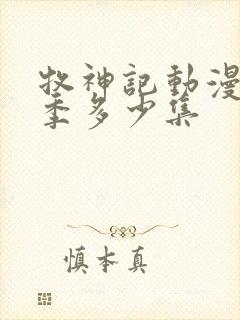 牧神記動漫
季多少集
慎本真